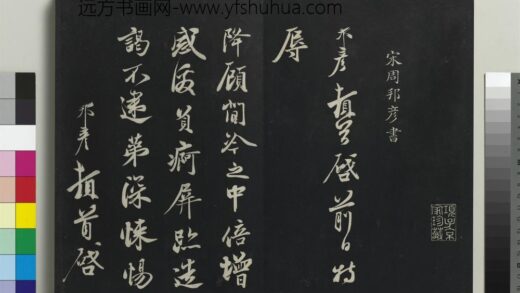 远方书画网-www.yfshuhua.com
宋周邦彦书
邦彦頓首啓前日特
辱
降顧閒冷之中倍增
感戢負痾屏跡造
謁不逮第深悚惕
邦彦頓首啓